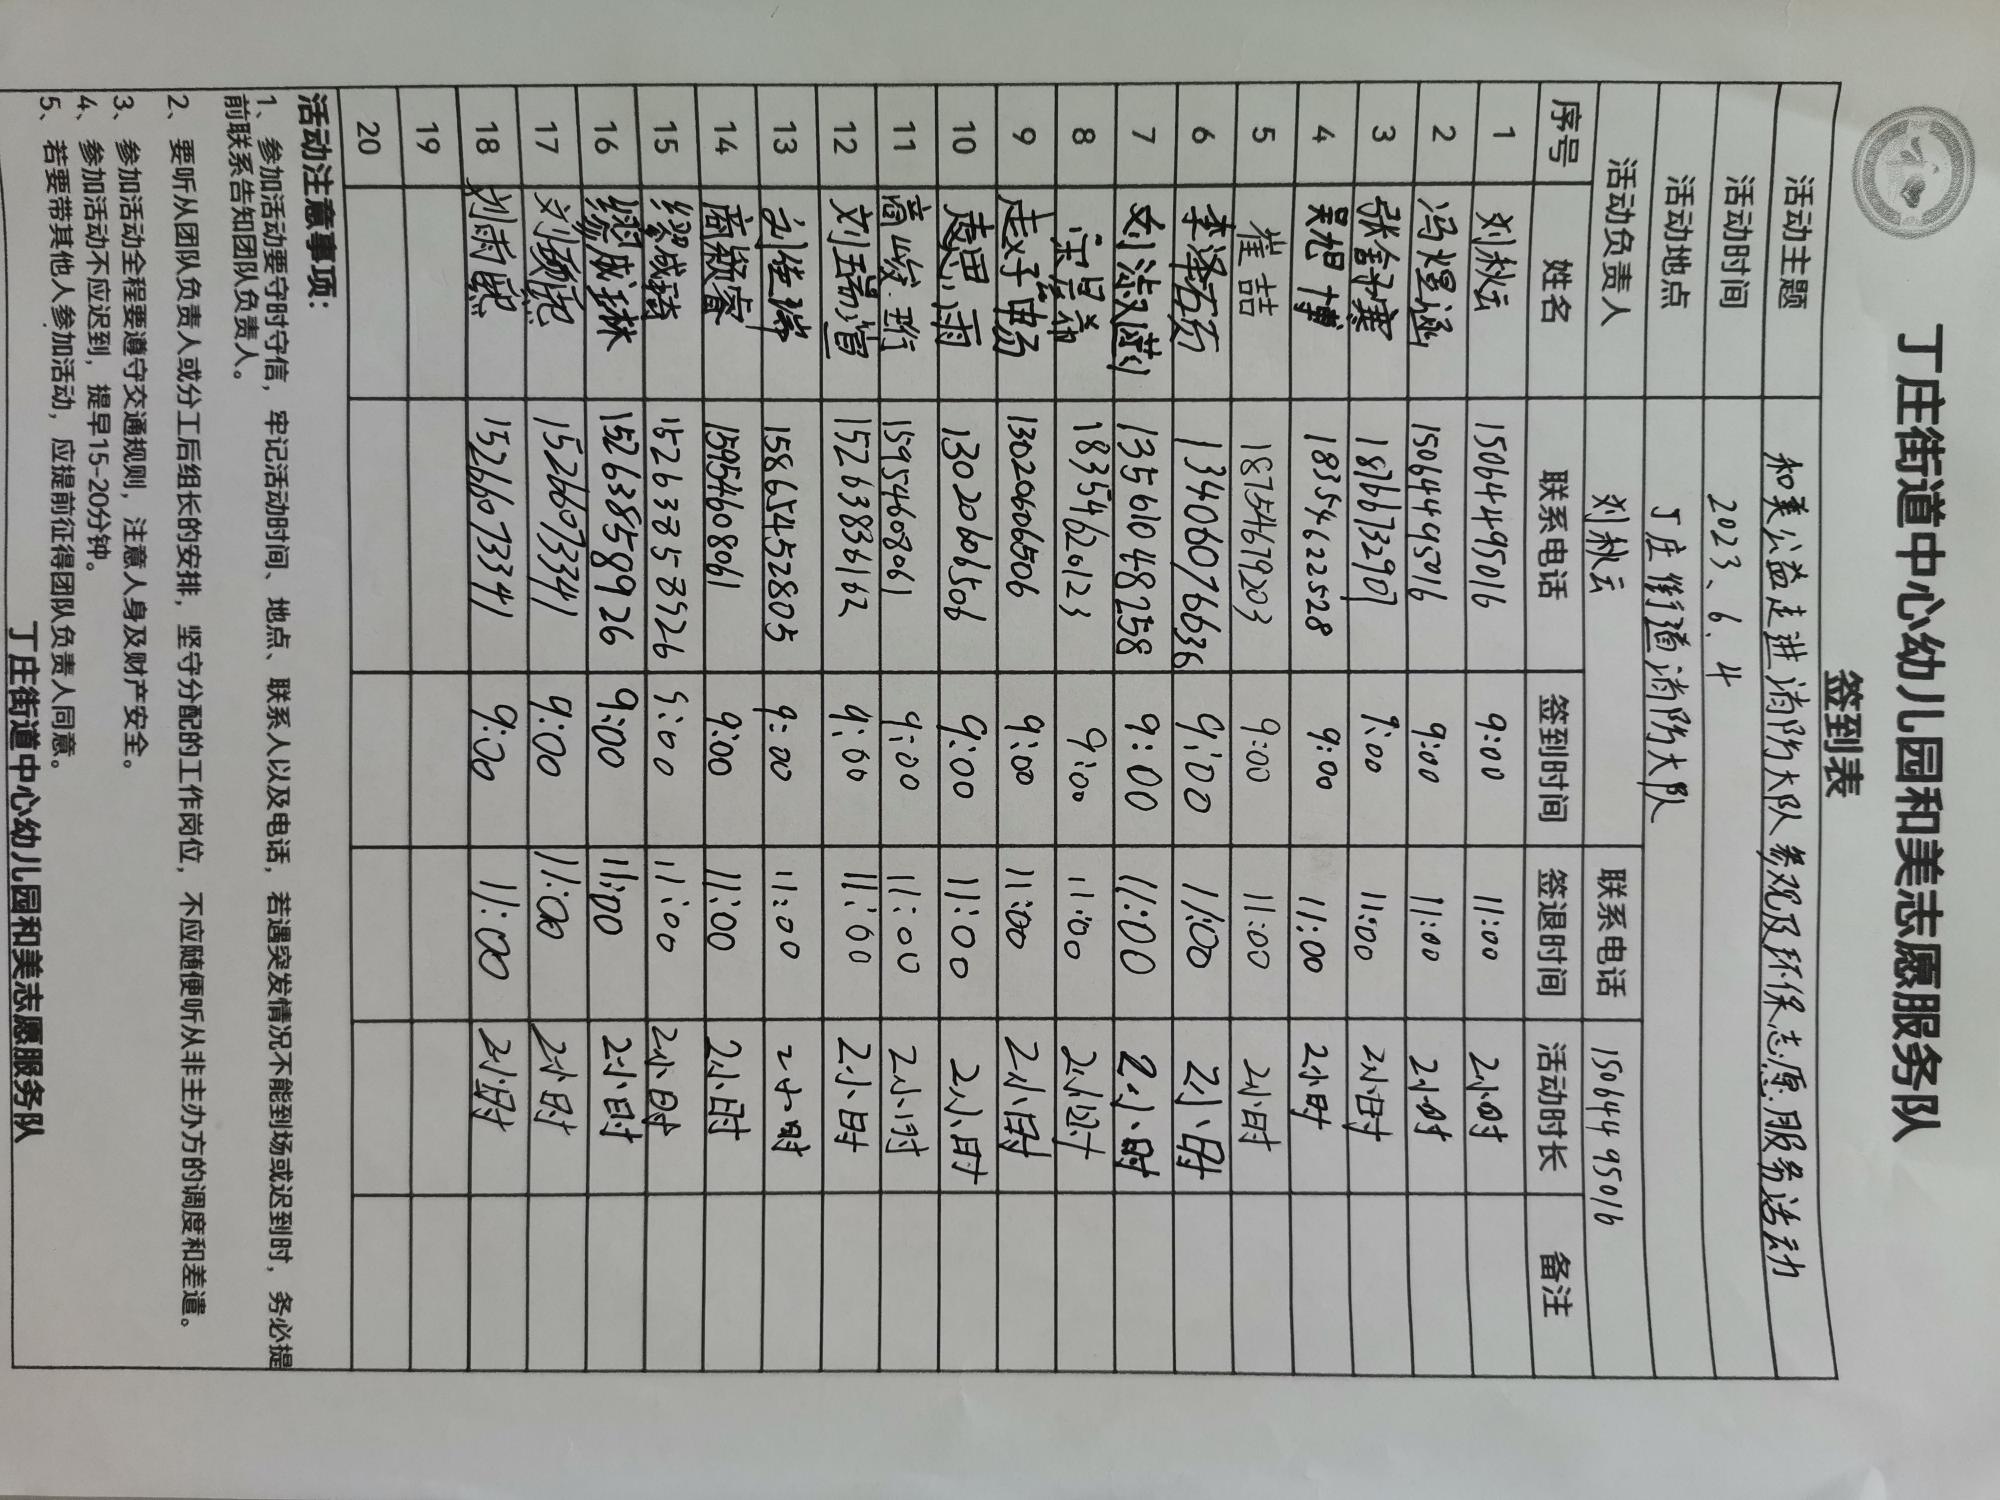 丁庄街道中心幼儿园和美志愿服务队
签到表
活动主题 和美公益走进消防大队参观及环保志愿服务活动
活动时间 2023、6、4
活动地点 丁庄街道消防大队
活动负责人 刘秋云 联系电话 15064495016
序号 姓名 联系电话 签到时间 签退时间 活动时长 备注
1 刘秋云 15064495016 9:00 11:00 2小时
2 冯煜涵 15064495016 9:00 11:00 2小时
3 18766732907 9:00 11:00 2小时
4 吴旭博 18354622528 9:00 11:00 2小时
5 崔喆 18754679203 9:00 11:00 2小时
6 李泽 13406076636 9:00 11:00 2小时
7 刘淑 13561048258 9:00 11:00 2小时
8 18354620123 9:00 11:00 2小时
9 13020606506 9:00 11:00 2小时
10 赵思雨 13020606506 9:00 11:00 2小时
11 15954608061 9:00 11:00 2小时
12 15263836162 9:00 11:00 2小时
13 刘佳 15865452805 9:00 11:00 2小时
14 商颖睿 15954608061 9:00 11:00 2小时
15 9:00 11:00 2小时
16 15263858926 9:00 11:00 2小时
17 15266073341 9:00 11:00 2小时
18 刘雨熙 15266073341 9:00 11:00 2小时
19
20
活动注意事项：
1、参加活动要守时守信，牢记活动时间、地点、联系人以及电话，若遇突发情况不能到场或迟到时，务必提
前联系告知团队负责人。
2、要听从团队负责人或分工后组长的安排，坚守分配的工作岗位，不应随便听从非主办方的调度和差遣。
3、参加活动全程要遵守交通规则，注意人身及财产安全。
4、参加活动不应迟到，提早15-20分钟。
5、若要带其他人参加活动，应提前征得团队负责人同意。
丁庄街道中心幼儿园和美志愿服务队